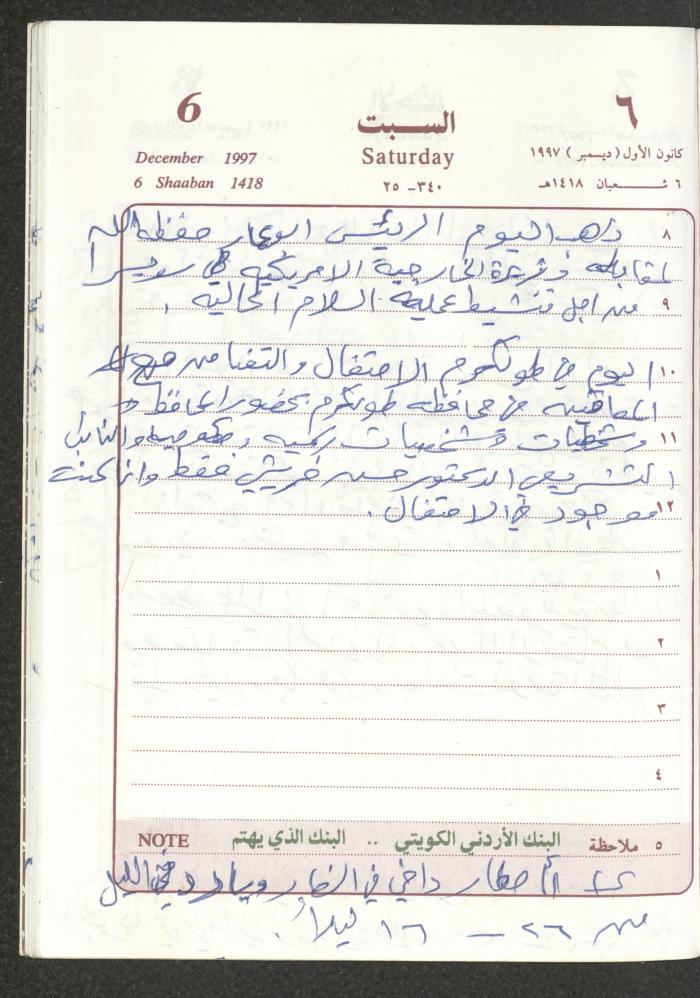 6
December 1997
6 Shaaban 1418
السبت
Saturday
٣٤٠-٢٥
٦
كانون الأول (ديسمبر) ١٩٩٧
٦ شعبان ١٤١٨هـ
٨ ذهب اليوم الرئيس ابو عمار حفظه الله
لمقابلة وزيرة الخارجية الامريكية في سويسرا
٩ من اجل تنشيط عملية السلام الحالية .
١٠ اليوم في طولكرم الاحتفال والتضامن مع
المعاقين في محافظة طولكرم بحضور المحافظ
١١ وشخصيات رسمية والنائب
التشريعي الدكتور حسن خريشي فقط وانا كنت
١٢ موجود في الاحتفال .
١
٢
٣
٤
٥ ملاحظة
البنك الأردني الكويتي .. البنك الذي يهتم
NOTE
دافئ في النهار وبارد في الليل
من ٢٦ – ١٦ ليلاً .